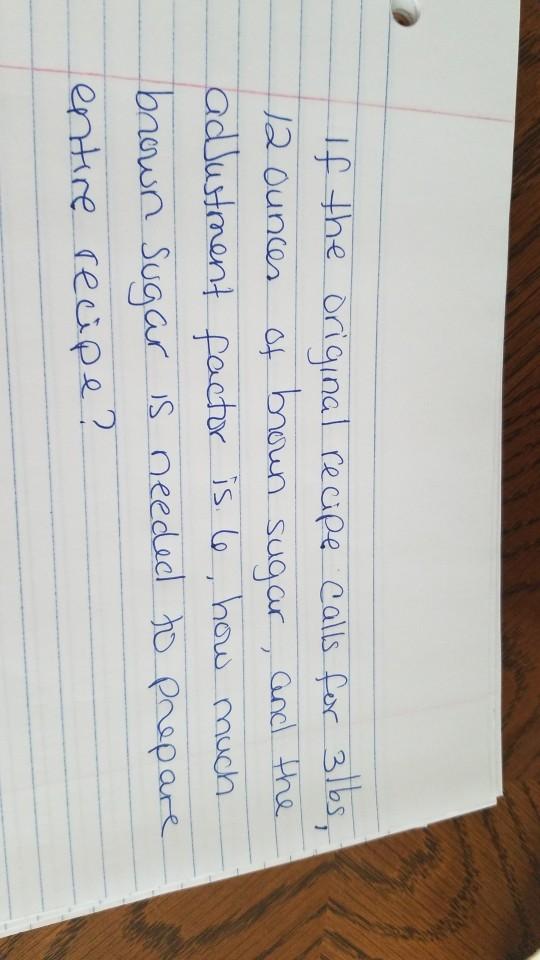 If the original recipe calls for 3lbs,
12 ounces of brown sugar, and the
adjustment factor is 6, how much
brown sugar is needed to prepare
entire recipe?